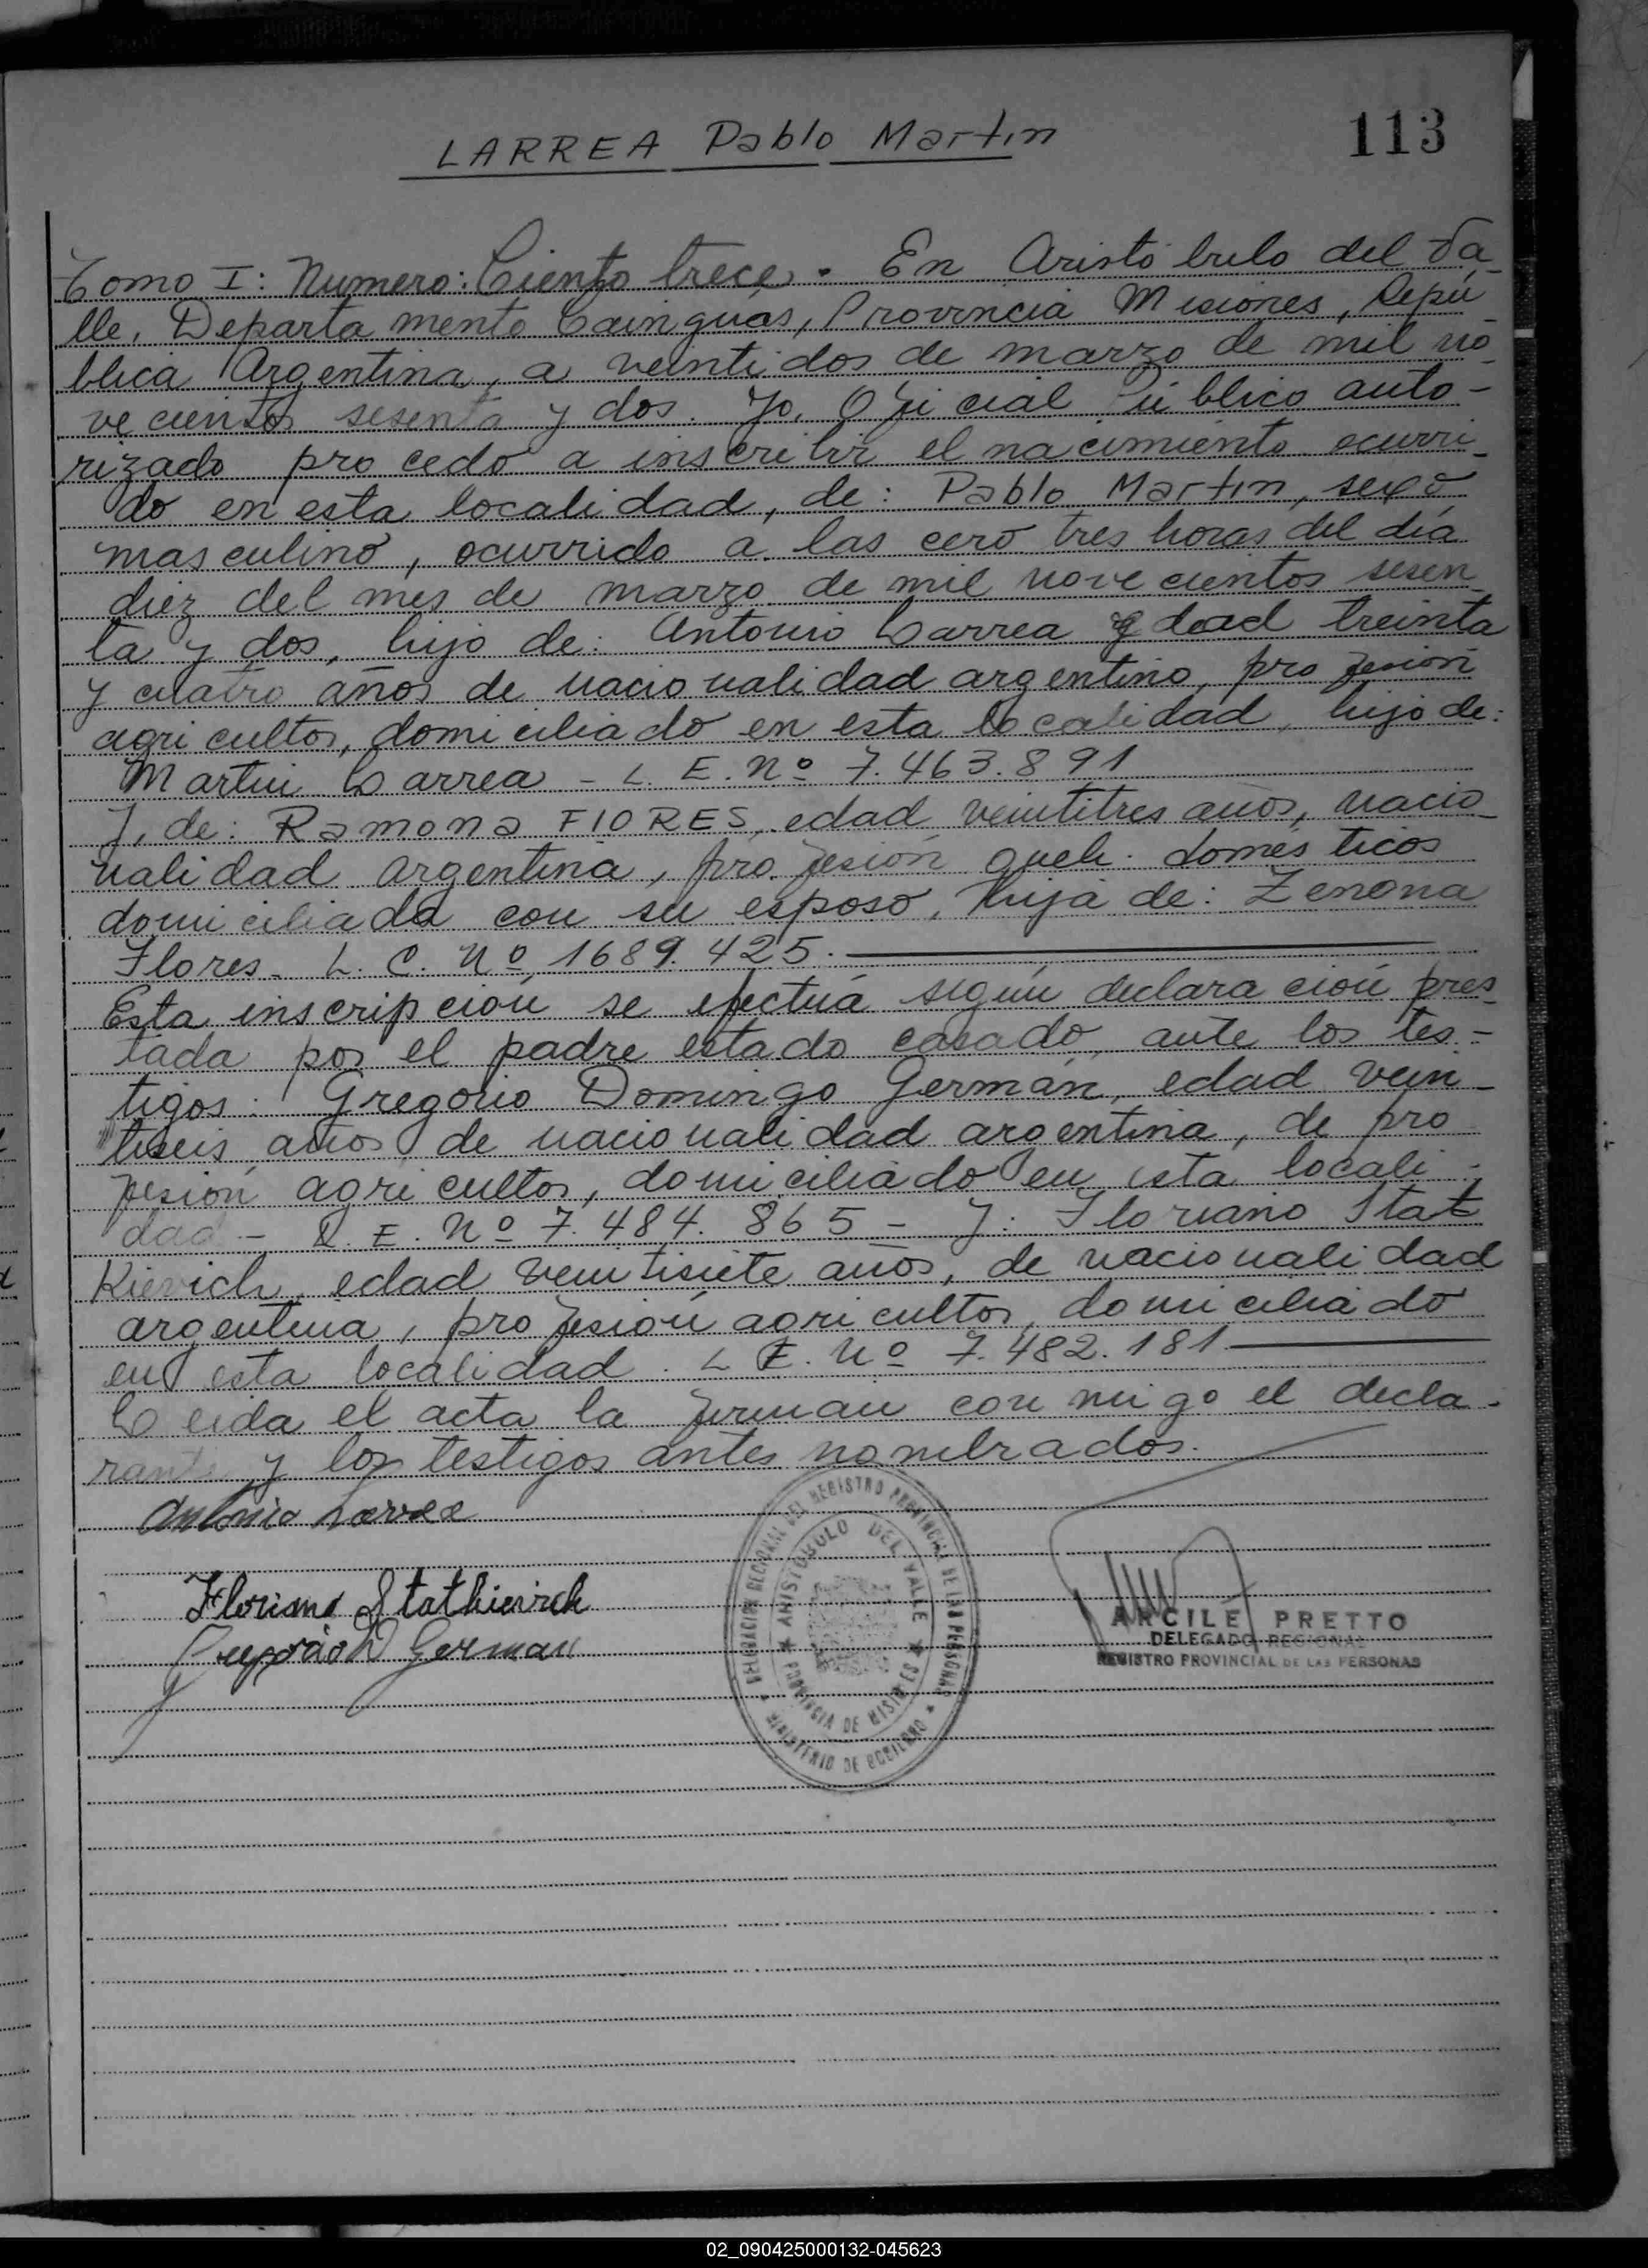 LARREA Pablo Martin
113
Tomo I: Numero: Ciento trece. En Aristó bulo del Va
lle, Departa mento Cainguas, Provincia Misiones, Repú
blica Argentina, a veinti dos de marzo de mil no
ve cientos sesenta y dos. Yo, Ofi cial Pú blico auto-
rizado pro cedo a inscribir el na cimiento ocurri
do en esta locali dad, de: Pablo Martin, sexo
mas culino, ocurrido a las cero tres horas del día
diez del mes de marzo de mil nove cientos sesen
ta y dos, hijo de: Antonio Larrea edad treinta
y cuatro años de nacio nalidad argentino, pro fesión
agri cultor, domi cilia do en esta lo calidad, hijo de:
Martin Larrea - L. E. Nº 7.463.891
Y, de: Ramona FLORES, edad veintitres años, nacio
nali dad argentina, pro fesión queh. domés ticos
domi ciliada con su esposo, hija de: Zenona
Flores - L. C. Nº 1689.425.
Esta inscrip ción se efectuá según declara ción pres
tada por el padre estado casado, ante los tes-
tigos: Gregorio Domingo Germán, edad vein-
tiseis años de nacio nali dad argentina, de pro
fesión agri cultor, domi ciliado en esta locali
dad - L. E. Nº 7.484.865 - Y: Floriano Stat
Kievich, edad vein tisiete años, de nacio nali dad
argentina, pro fesión agri cultor, domi cilia do
en esta localidad. L E. Nº 7.482.181
Leida el acta la firman con mi go el decla-
rante y los testigos antes nombrados.
Antonio Larrea
Floriano Statkievich
Gregorio D German
DELEGACION REGIONAL DEL REGISTRO PROVINCIAL DE LAS PERSONAS
ARISTOBULO DEL VALLE
PROVINCIA DE MISIONES
MINISTERIO DE GOBIERNO
ARCILE PRETTO
DELEGADO REGIONAL
REGISTRO PROVINCIAL DE LAS PERSONAS
02_090425000132-045623